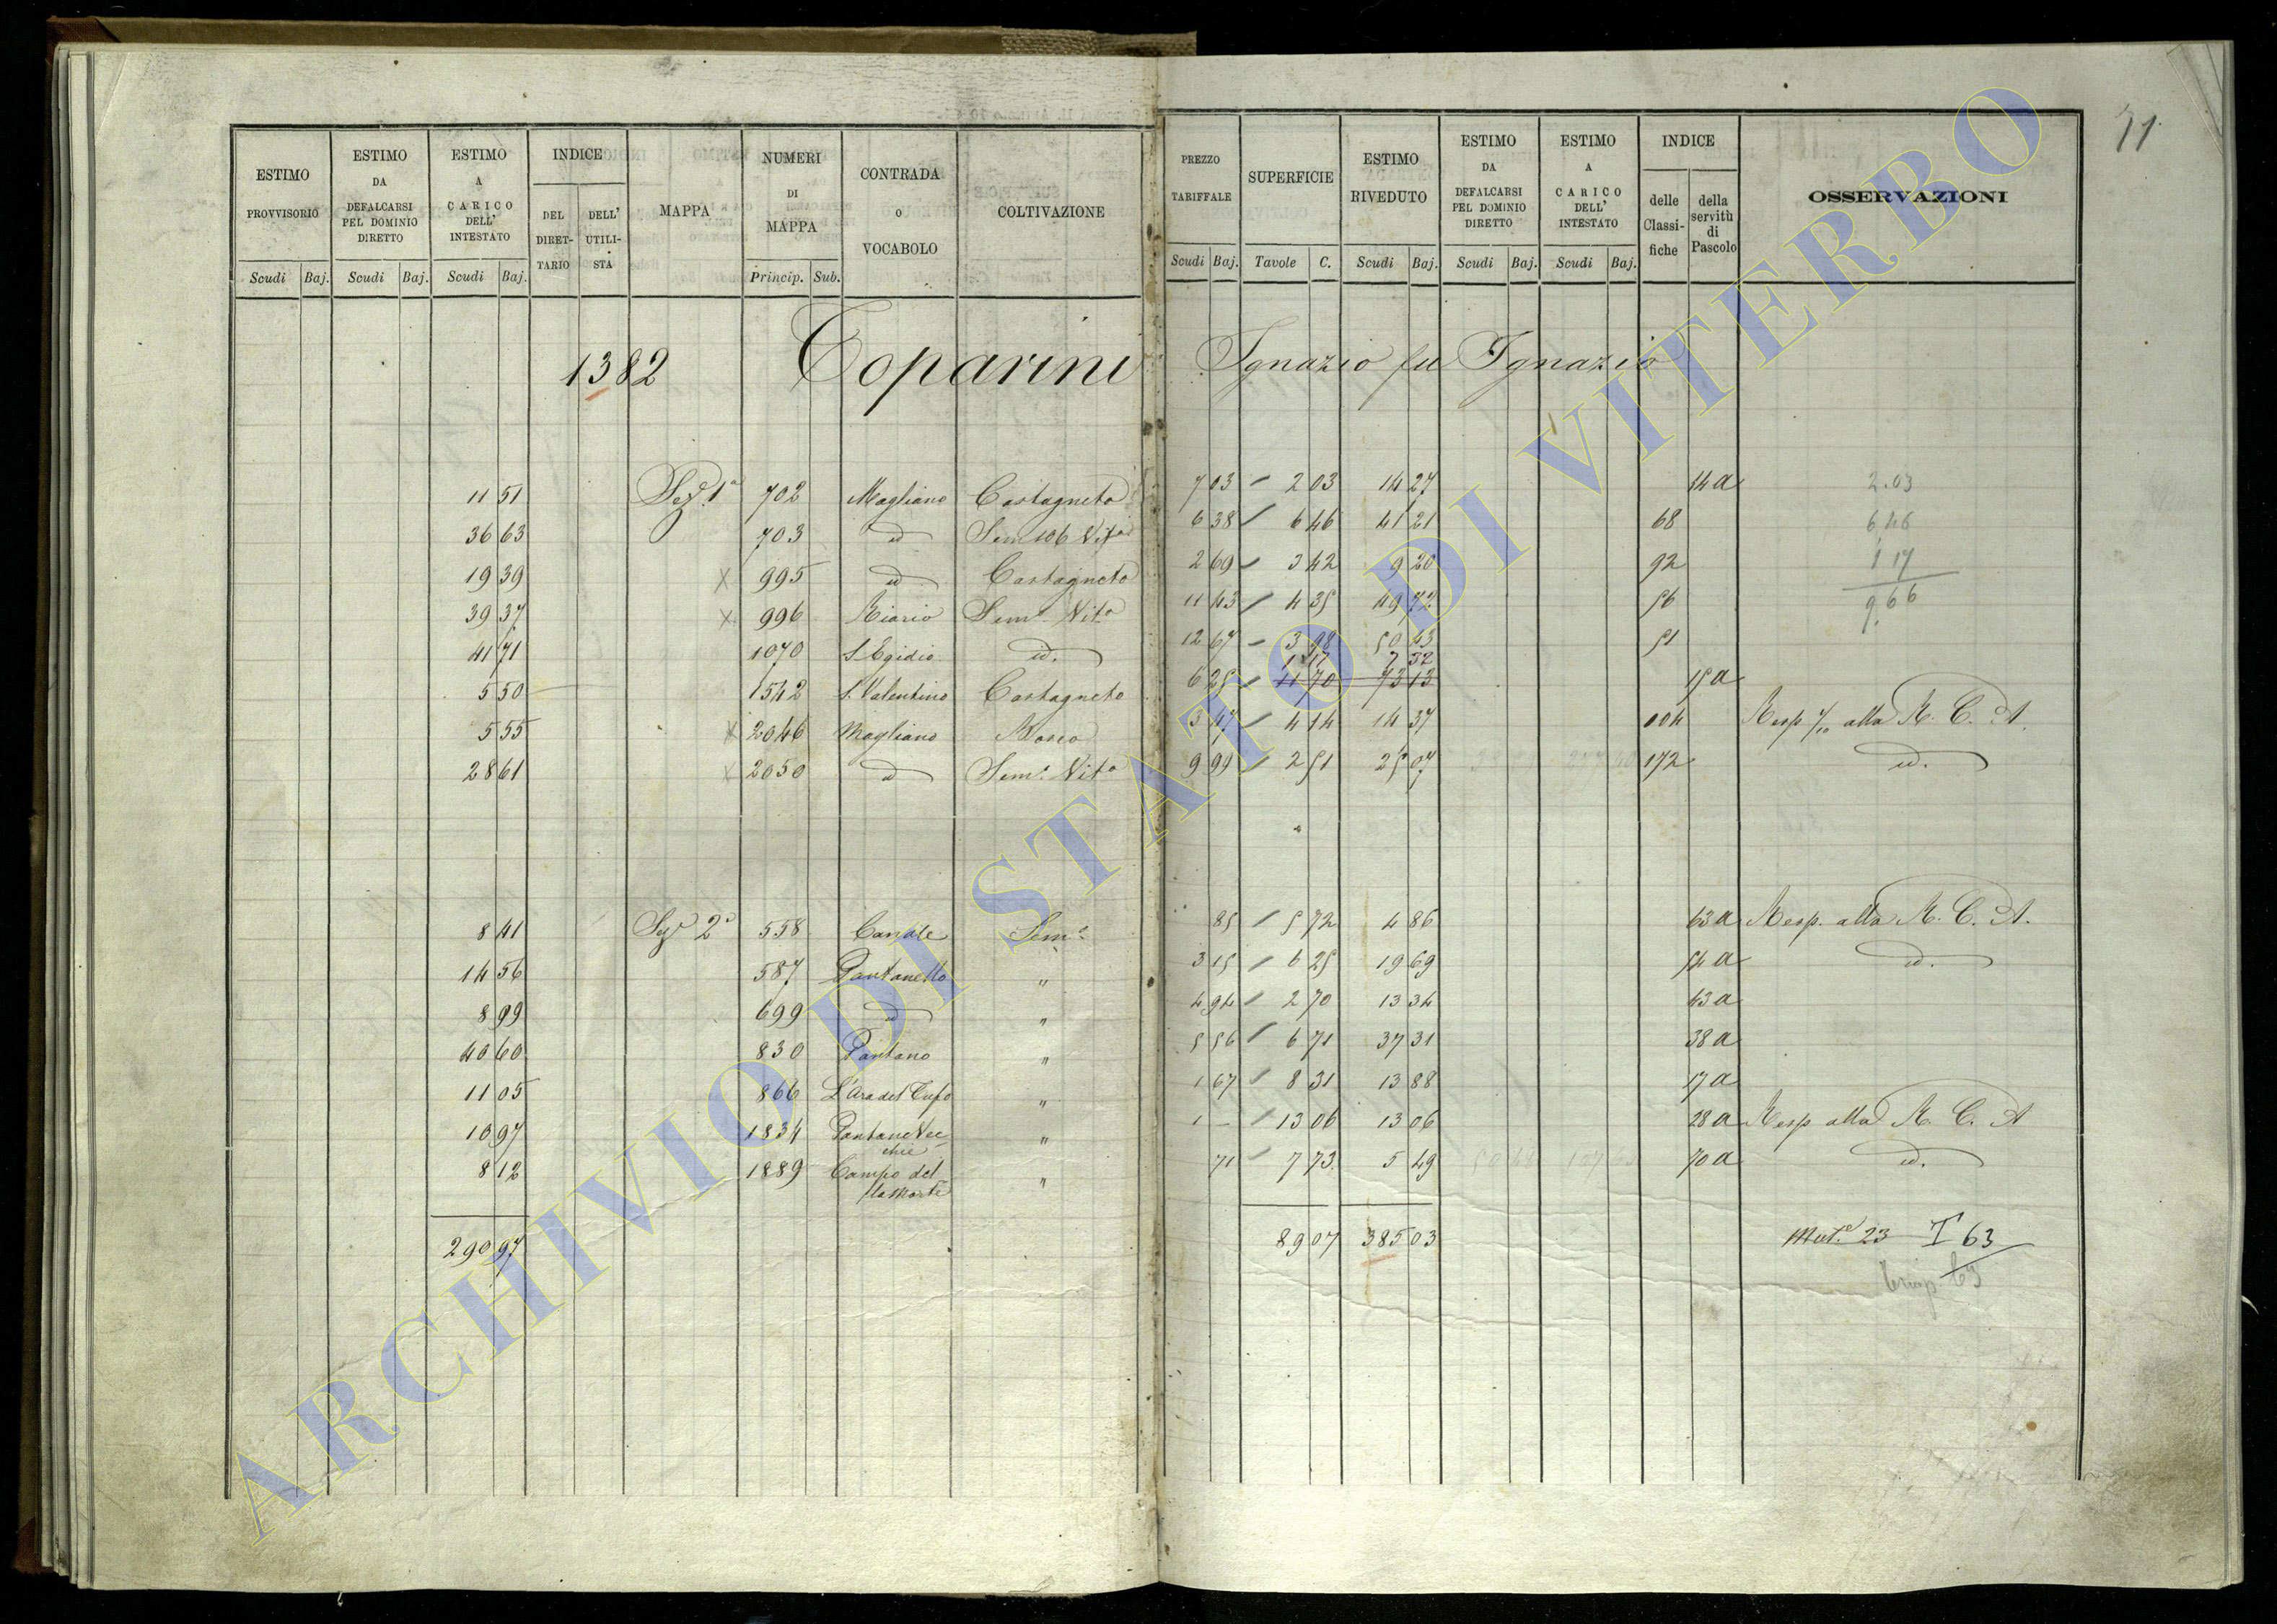 11
ESTIMO PROVVISORIO
ESTIMO DA DEFALCARSI PEL DOMINIO DIRETTO
ESTIMO A CARICO DELL' INTESTATO
INDICE
DEL DIRET-TARIO
DELL' UTILI-STA
MAPPA
NUMERI DI MAPPA
CONTRADA o VOCABOLO
COLTIVAZIONE
PREZZO TARIFFALE
SUPERFICIE
ESTIMO RIVEDUTO
ESTIMO DA DEFALCARSI PEL DOMINIO DIRETTO
ESTIMO A CARICO DELL' INTESTATO
INDICE
delle Classi-fiche
della servitù di Pascolo
OSSERVAZIONI
Scudi Baj. Scudi Baj. Scudi Baj. Princip. Sub. Scudi Baj. Tavole C. Scudi Baj. Scudi Baj. Scudi Baj.
1382 Toparini Ignazio fu Ignazio
11 51 Sez.e 1a 702 Magliano Castagneto 7 03 2 03 14 27 14a 2.03
36 63 703 id Sem 106 Vito 6 38 6 46 41 21 68 6,46
19 39 x 995 id Castagneto 2 69 3 42 9 20 92 1 17
39 37 x 996 Riario Sem. Vito 11 43 4 35 49 72 56 9,66
41 71 1070 S. Egidio id. 12 67 3 98 50 43 51
1 17 7 32
5 50 1542 S. Valentino Castagneto 6 25 11 70 73 13 15a
5 55 x 2046 Magliano Bosco 3 47 4 14 14 37 104 Resp 7/10 alla R. C. A.
28 61 x 2050 id Sem. Vito 9 99 2 51 25 07 172 id.
8 41 Sez 2a 558 Canale Sem. 85 5 72 4 86 63a Resp. alla R. C. A.
14 56 587 Pantanello " 3 15 6 25 19 69 54a id.
8 99 699 id " 4 94 2 70 13 34 43a
40 60 830 Pantano " 5 56 6 71 37 31 38a
11 05 866 L'Ara del Tufo " 1 67 8 31 13 88 17a
10 97 1834 Pantane Vec
chie " 1 – 13 06 13 06 28a Resp alla R. C. A
8 12 1889 Campo del
la Morte " 71 7 73 5 49 70a id.
290 97 89 07 385 03 Mut.e 23 T 63
63
ARCHIVIO DI STATO DI VITERBO